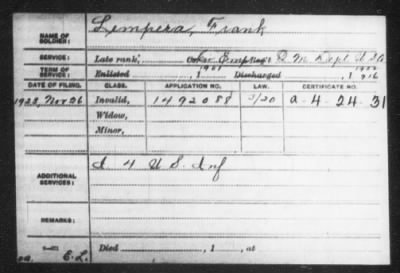 NAME OF SOLDIER: Lempera, Frank
SERVICE: Late rank, Civ Emp Q M Dept U S A
TERM OF SERVICE: Enlisted , 1 Discharged , 1916
DATE OF FILING. CLASS. APPLICATION NO. LAW. CERTIFICATE NO.
1923, Nov 26 Invalid, 1492088 3/20 a-4-24-31
Widow,
Minor,
ADDITIONAL SERVICES: 4 U S Inf
REMARKS:
Died , 1 , at
E.L.